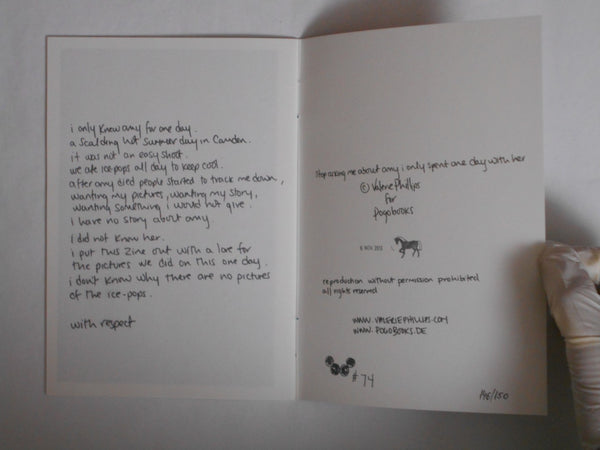 i only knew amy for one day.
a scalding hot summer day in Camden.
it was not an easy shoot.
we ate ice-pops all day to keep cool.
after amy died people started to track me down,
wanting my pictures, wanting my story,
wanting something i would not give.
i have no story about amy.
i did not know her.
i put this zine out with a love for
the pictures we did on this one day.
i don't know why there are no pictures
of the ice-pops.
with respect
Stop asking me about amy i only spent one day with her
© Valerie Phillips
for
Pogobooks
reproduction without permission prohibited
all rights reserved
www.valeriephillips.com
www.pogobooks.de
#74
146/150